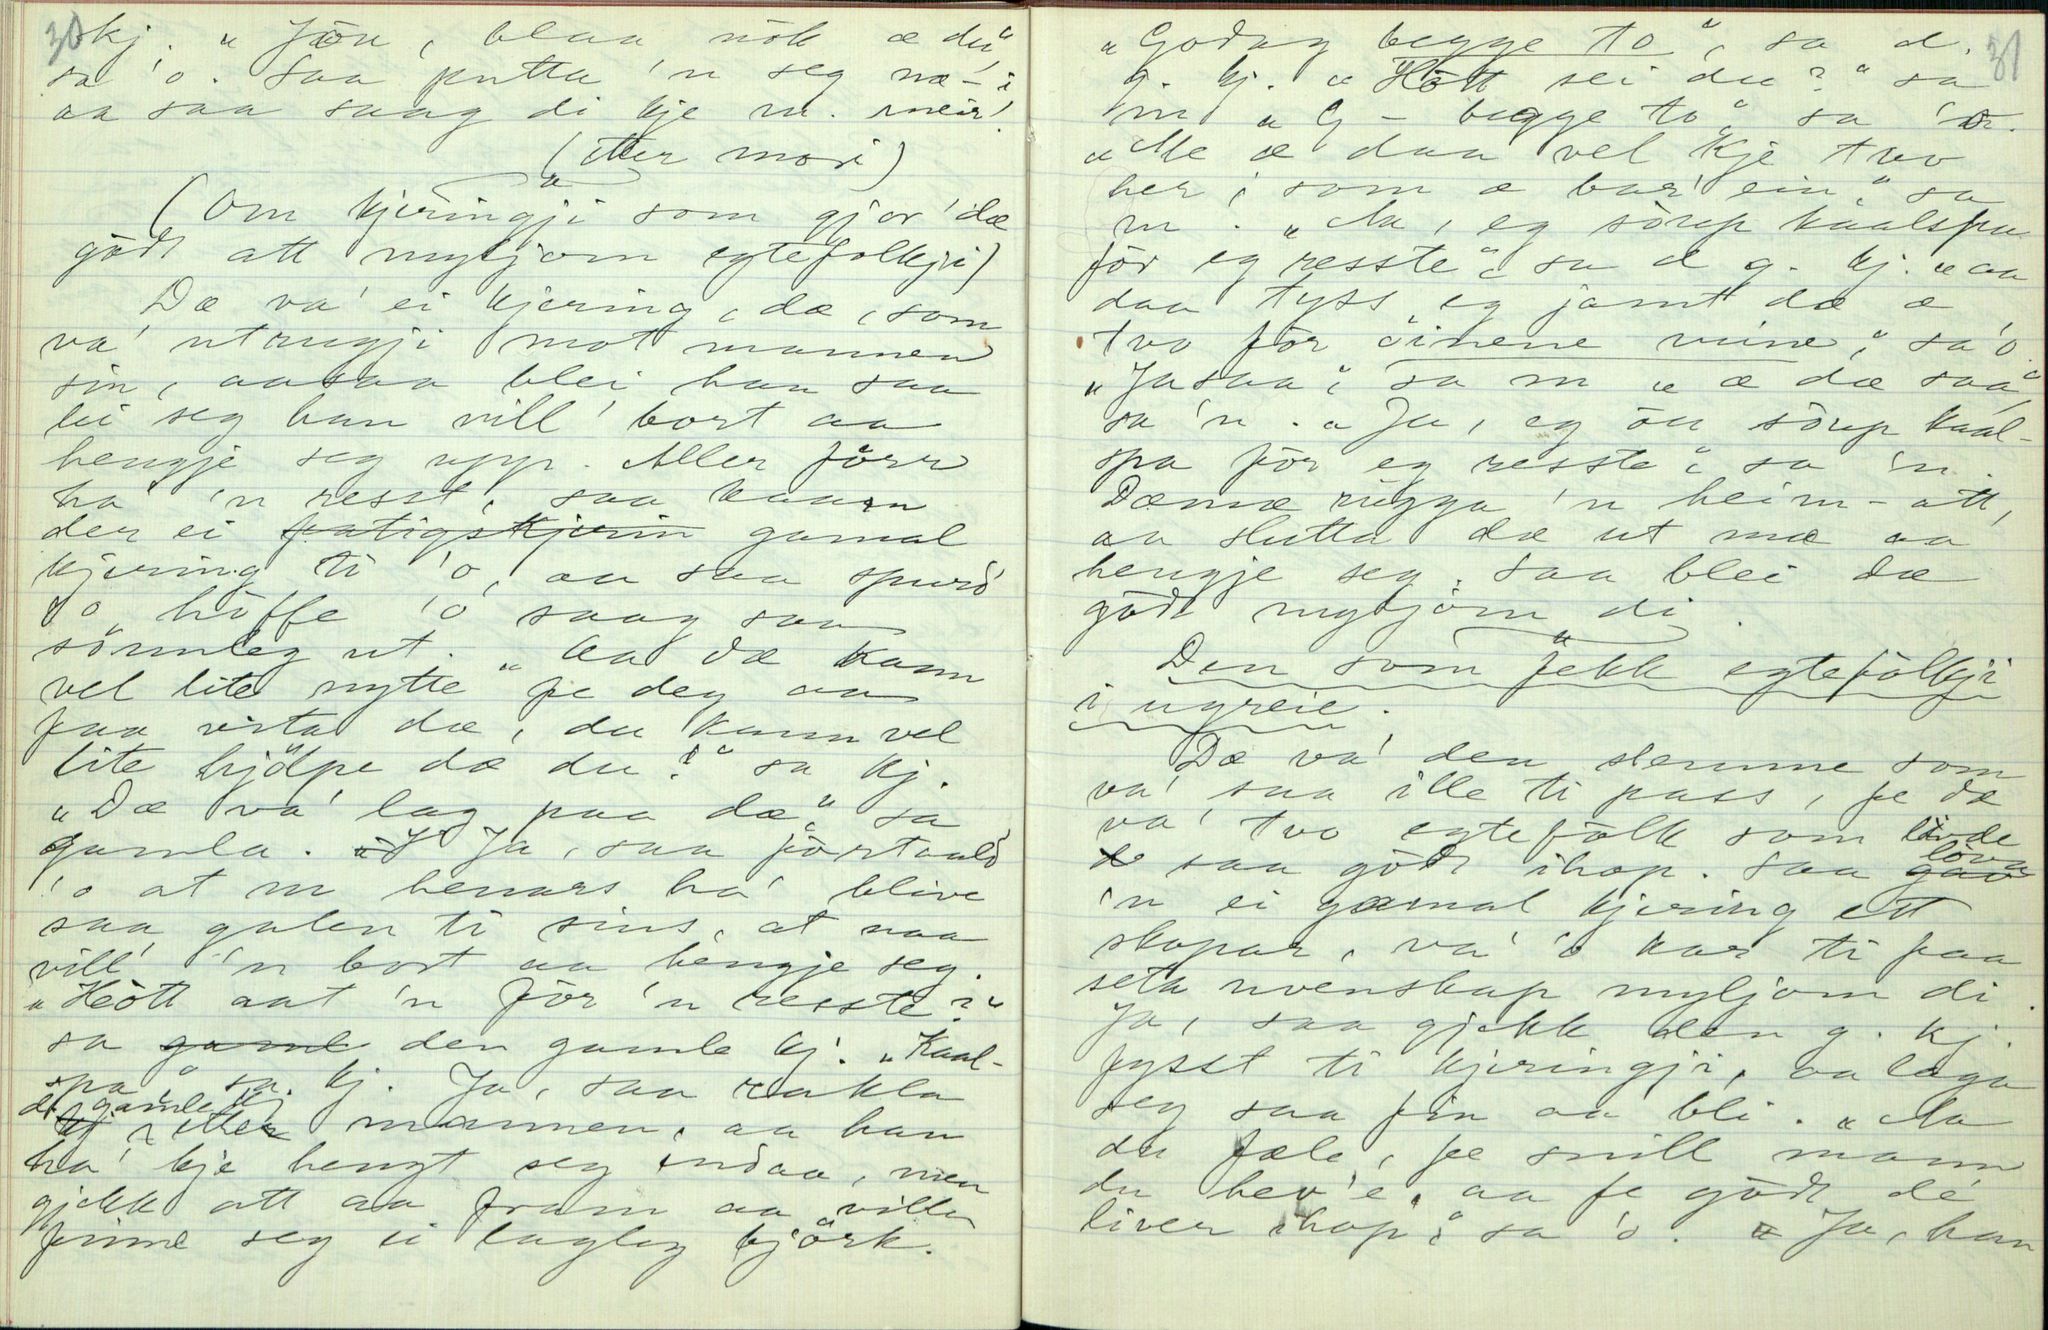 30
kj. "Jöu, blaa nök æ du"
sa 'o. Saa putta 'n seg næ-i
aa saa saag di kje m. meir!
(Etter mori)
(Om kjeringji som gjor' dæ
godt att mykjom egtefolkji)
Dæ va' ei kjering, dæ, som
va' utrugji mot mannen
sin, aasaa blei han saa
lei seg han vill' bort aa
hengje seg upp. Aller förr
ha 'n resst, saa kaam
der ei fatigskjerin gamal
kjering ti 'o, aa saa spurd'
'o höffe 'o saag saa
sörmleg ut. "Aa dæ kann
vel lite nytte fe deg aa
faa vista dæ, du kann vel
lite hjölpe dæ du?" sa kj.
"Dæ va' lag paa dæ" sa
gamla. Ja, saa förtaald'
'o at m hennars ha' blive
saa galen ti sins, at naa
vill' 'n bort aa hengje seg.
"Hött aat 'n för 'n resste?"
sa gaml den gamle kj. "Kaal-
spa" sa kj. Ja, saa rakla
d. gamle kj
kj etter mannen, aa han
ha' kje hengt seg endaa, men
gjekk att aa fram aa ville
finne seg ei lagleg björk.
31
"Godag begge to", sa d.
g. kj. "Hött sei du?" sa
m "G – begge to" sa 'o.
"Me æ daa vel kje tvo
her, som æ bar' ein" sa
m. "Aa, eg sörup kaalspa
för eg resste", sa d g. kj. "aa
daa tyss eg jamt dæ æ
tvo för öinene mine", sa 'o.
"Jasaa", sa m "æ dæ saa",
sa 'n. "Ja, eg öu sörup kaal-
spa för eg resste", sa 'n.
Dæmæ rugga 'n heim-att,
aa slutta dæ ut mæ aa
hengje seg. Saa blei dæ
godt mykjom di.
Den som fekk egtefölkji
i ugreie.
Dæ va' den slemme som
va' saa ille ti pass, fe dæ
va' tvo egtefölk som livde
saa godt ihop. Saa gav lova
'n ei gamal kjering ett
skopar, va' 'o kar ti faa
seta uvenskap mykjom di.
Ja, saa gjekk den g. kj.
fysst ti kjeringji, aa laga
seg saa fin aa bli. "Aa
du fæle, fe snill mann
du hev'e, aa fe godt de
liver ihop", sa 'o. "Ja, han